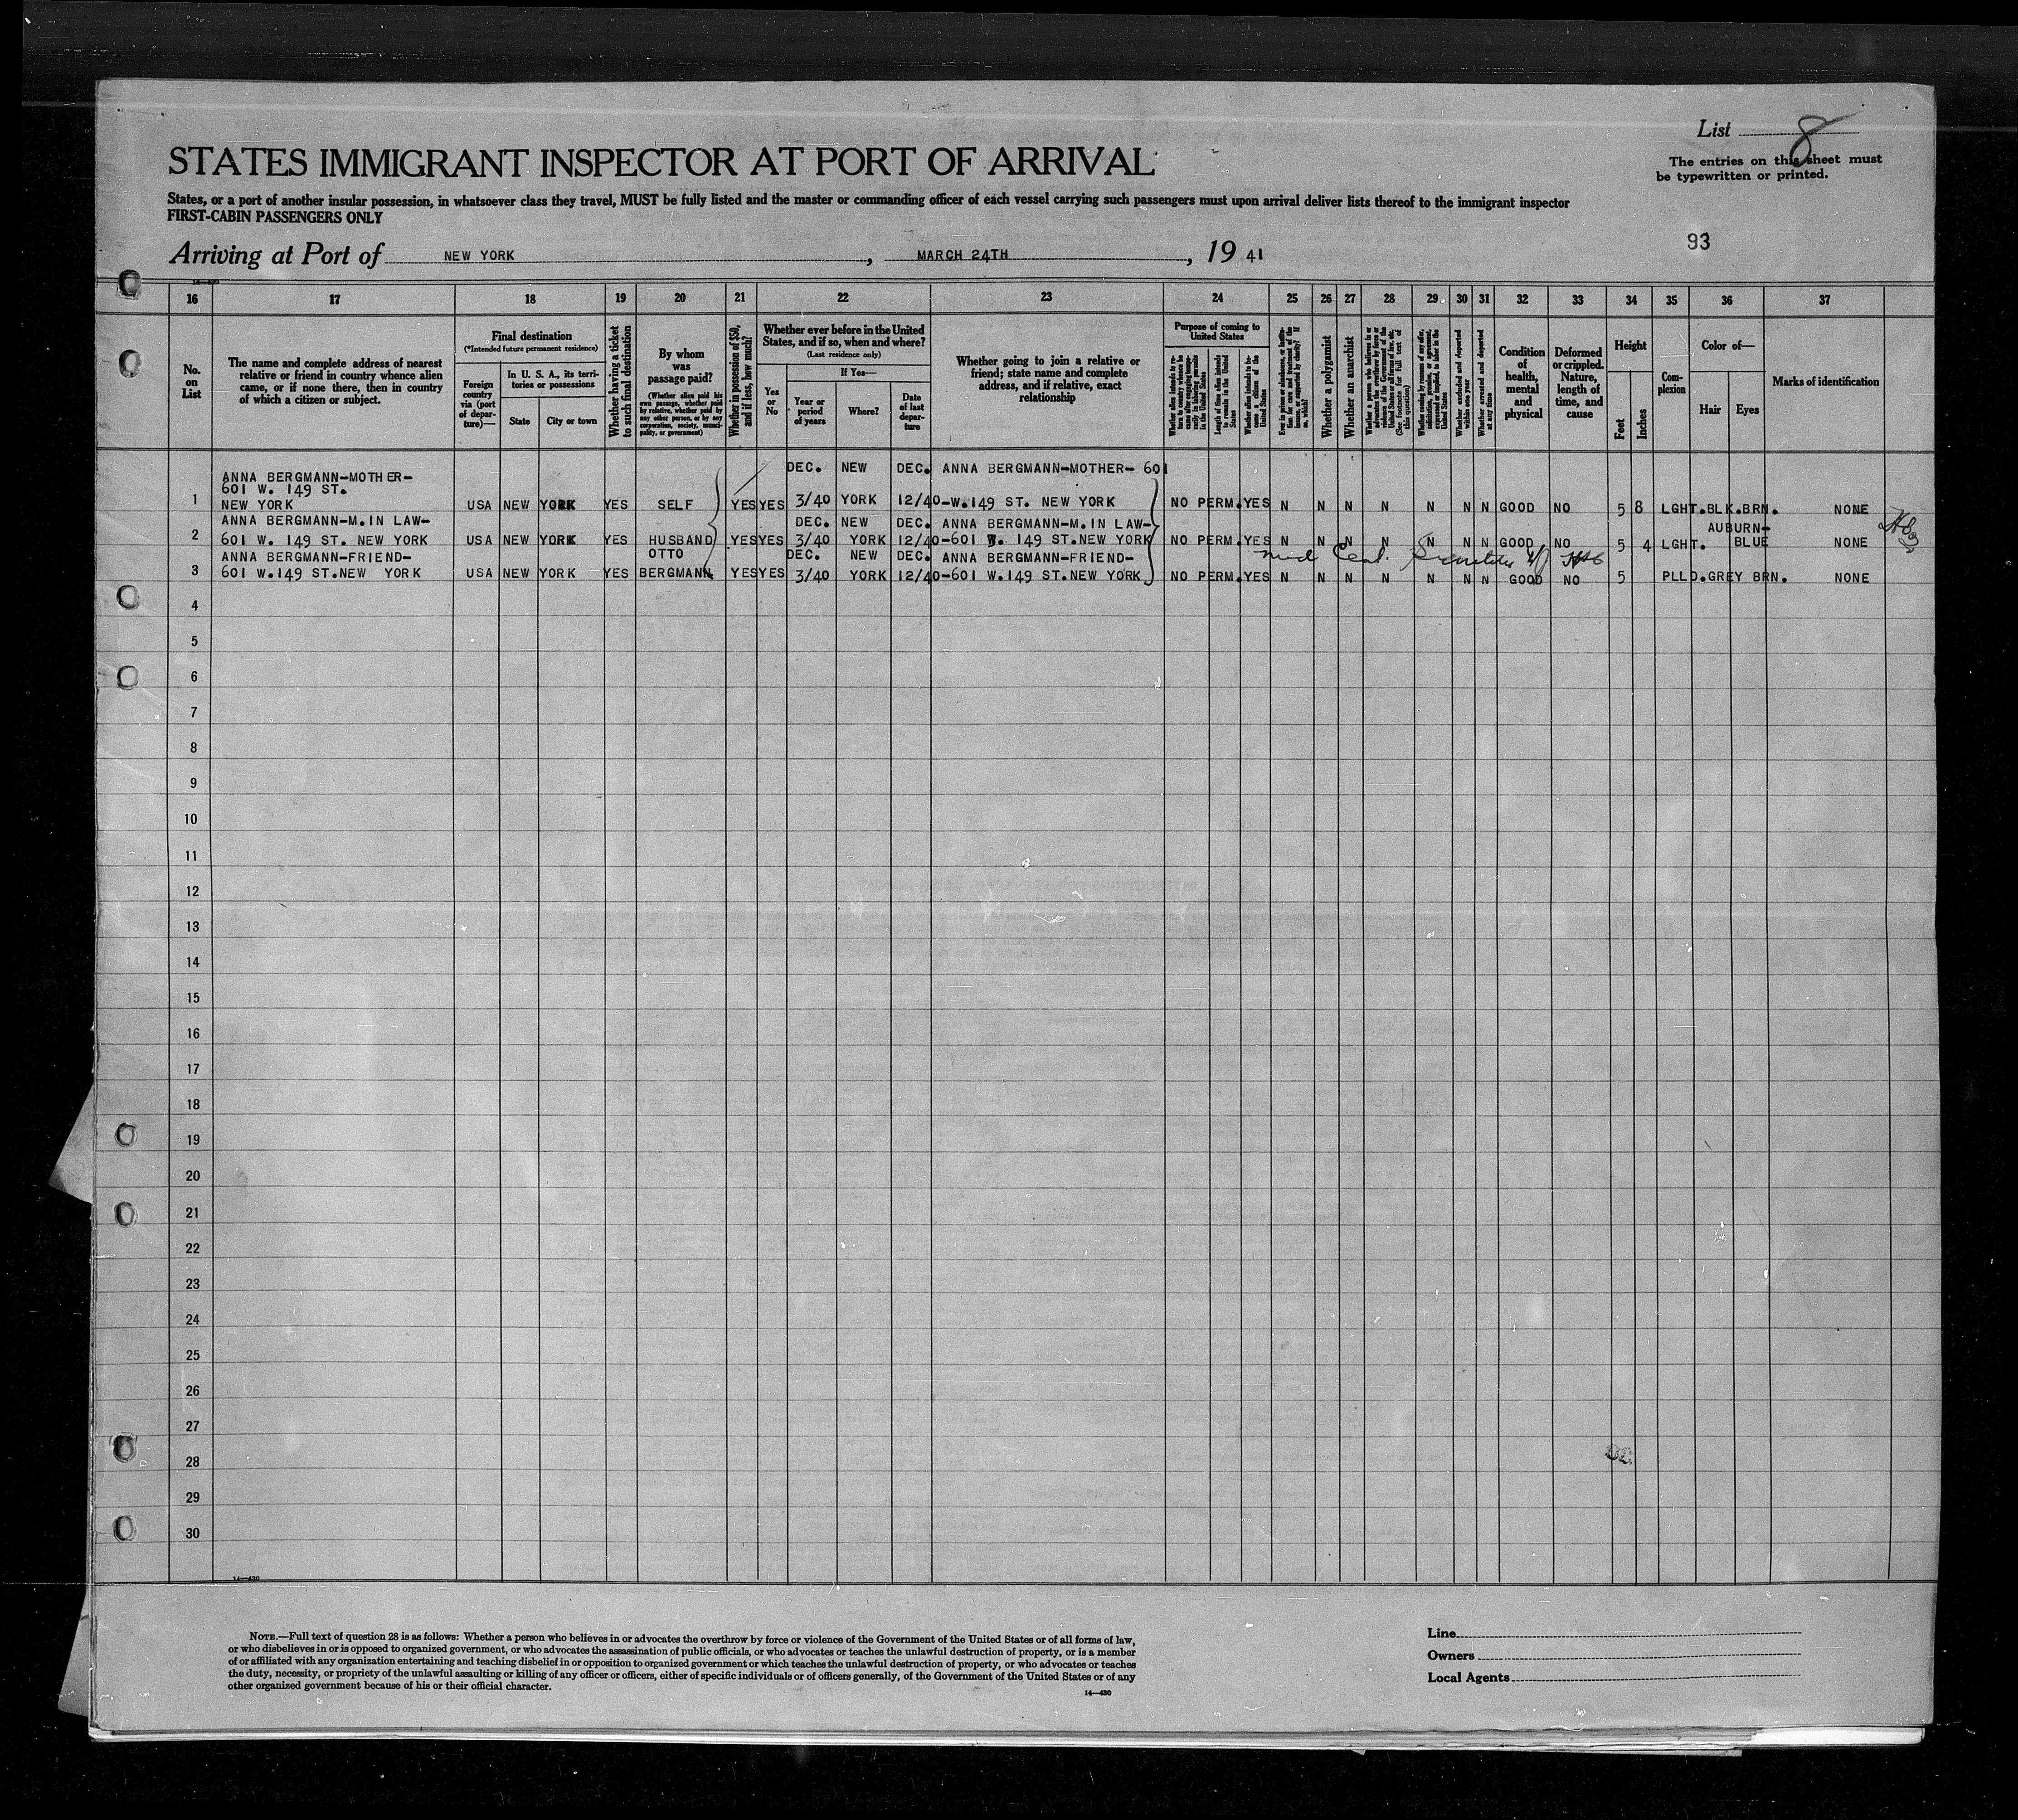 List 8
The entries on this sheet must
be typewritten or printed.
STATES IMMIGRANT INSPECTOR AT PORT OF ARRIVAL
States, or a port of another insular possession, in whatsoever class they travel, MUST be fully listed and the master or commanding officer of each vessel carrying such passengers must upon arrival deliver lists thereof to the immigrant inspector
FIRST-CABIN PASSENGERS ONLY
93
Arriving at Port of NEW YORK, MARCH 24TH, 19 41
14-430
16 17 18 19 20 21 22 23 24 25 26 27 28 29 30 31 32 33 34 35 36 37
No.
on
List
The name and complete address of nearest
relative or friend in country whence alien
came, or if none there, then in country
of which a citizen or subject.
Final destination
(*Intended future permanent residence)
Foreign
country
via (port
of depar-
ture)—
In U. S. A., its terri-
tories or possessions
State
City or town
Whether having a ticket
to such final destination
By whom
was
passage paid?
(Whether alien paid his
own passage, whether paid
by relative, whether paid by
any other person, or by any
corporation, society, munici-
pality, or government)
Whether in possession of $50,
and if less, how much?
Whether ever before in the United
States, and if so, when and where?
(Last residence only)
Yes
or
No
If Yes—
Year or
period
of years
Where?
Date
of last
depar-
ture
Whether going to join a relative or
friend; state name and complete
address, and if relative, exact
relationship
Purpose of coming to
United States
Length of time alien intends
to remain in the United
States
Whether alien intends to be-
come a citizen of the
United States
Whether a polygamist
Whether an anarchist
(See footnote for full text of
this question)
Whether excluded and deported
within one year
Whether arrested and deported
at any time
Condition
of
health,
mental
and
physical
Deformed
or crippled.
Nature,
length of
time, and
cause
Height
Feet
Inches
Com-
plexion
Color of—
Hair
Eyes
Marks of identification
ANNA BERGMANN-MOTHER- DEC. NEW DEC. ANNA BERGMANN-MOTHER- 601
601 W. 149 ST.
1 NEW YORK USA NEW YORK YES SELF YES YES 3/40 YORK 12/40-W.149 ST. NEW YORK NO PERM.YES N N N N N N N GOOD NO 5 8 LGHT.BLK.BRN. NONE
2 ANNA BERGMANN-M.IN LAW- DEC. NEW DEC. ANNA BERGMANN-M.IN LAW- AUBURN-
601 W. 149 ST. NEW YORK USA NEW YORK YES HUSBAND YES YES 3/40 YORK 12/40-601 W. 149 ST.NEW YORK NO PERM.YES N N N N N N N GOOD NO 5 4 LGHT. BLUE NONE
ANNA BERGMANN-FRIEND- OTTO DEC. NEW DEC. ANNA BERGMANN-FRIEND- Med Cert. Senility
3 601 W.149 ST.NEW YORK USA NEW YORK YES BERGMANN YES YES 3/40 YORK 12/40-601 W.149 ST.NEW YORK NO PERM.YES N N N N N N N GOOD NO 5 PLLD.GREY BRN. NONE
4
5
6
7
8
9
10
11
12
13
14
15
16
17
18
19
20
21
22
23
24
25
26
27
28
29
30
14-430
NOTE.—Full text of question 28 is as follows: Whether a person who believes in or advocates the overthrow by force or violence of the Government of the United States or of all forms of law,
or who disbelieves in or is opposed to organized government, or who advocates the assassination of public officials, or who advocates or teaches the unlawful destruction of property, or is a member
of or affiliated with any organization entertaining and teaching disbelief in or opposition to organized government or which teaches the unlawful destruction of property, or who advocates or teaches
the duty, necessity, or propriety of the unlawful assaulting or killing of any officer or officers, either of specific individuals or of officers generally, of the Government of the United States or of any
other organized government because of his or their official character.
14-430
Line
Owners
Local Agents